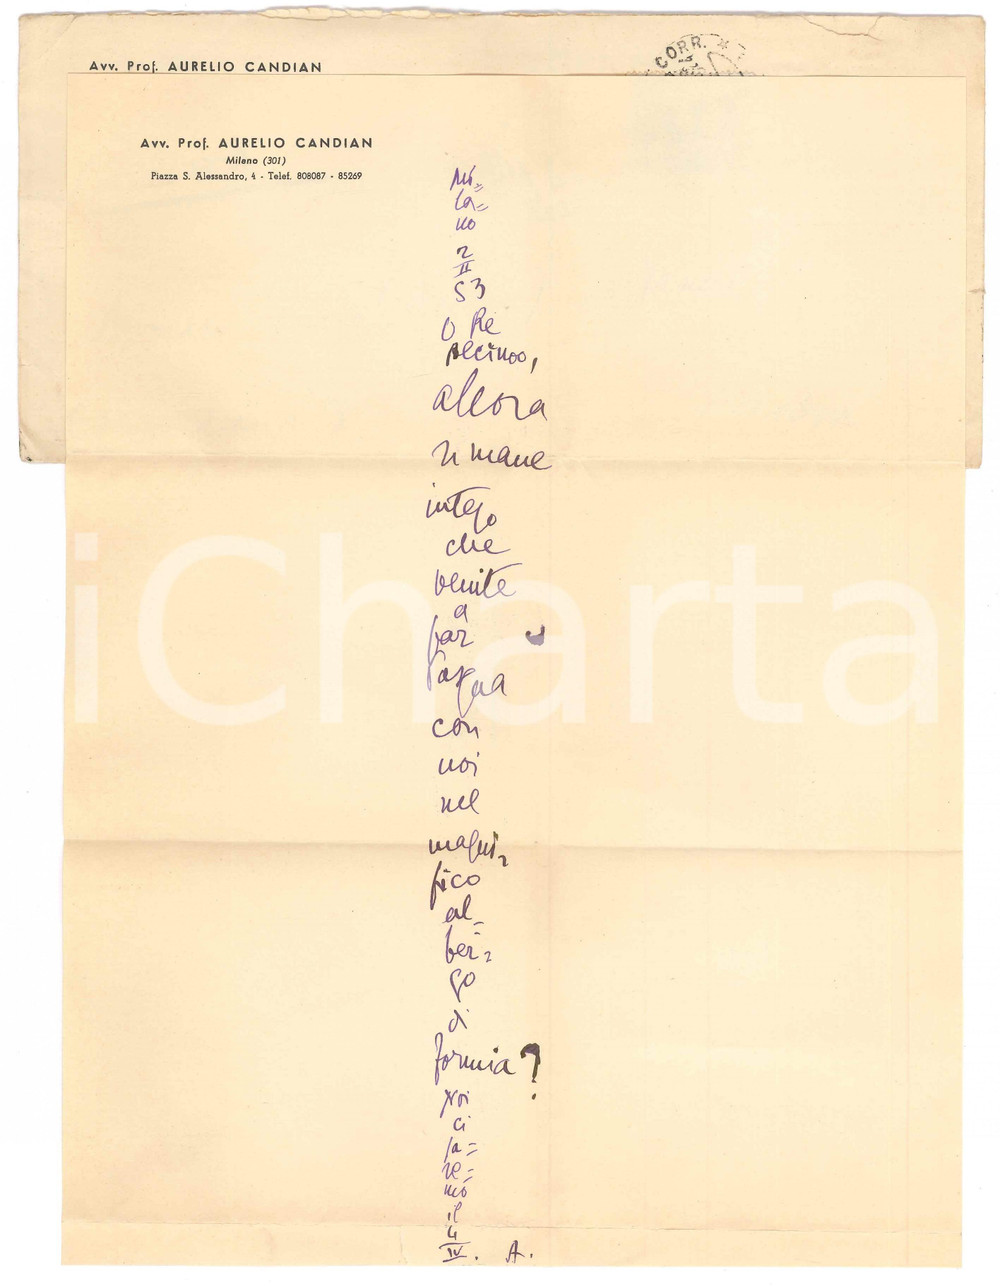 CORR.
Avv. Prof. AURELIO CANDIAN
Avv. Prof. AURELIO CANDIAN
Milano (301)
Piazza S. Alessandro, 4 - Telef. 808087 - 85269
Mi=
la=
no
2
II
53
O Re
Alcinoo,
allora
rimane
intego
che
venite
a
far
Pasqua
con
noi
nel
magni-
fico
al-
ber-
go
di
Formia?
Noi
ci
sa=
re=
mo
il
4
IV. A.
iCharta